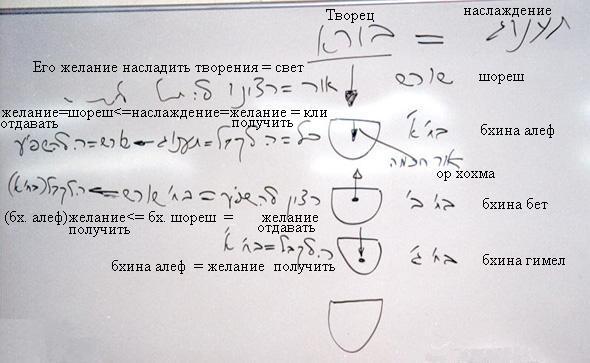 Творец наслаждение
בורא = תענוג
Его желание насладить творения = свет
אור = רצינו שורש шореш
желание=шореш<=наслаждение=желание = кли
отдавать получить
כלי = ה. לקבל = תענוג שורש = ה. להשפיע בח' א' бхина алеф
אור חכמה
ор хохма
רצון להשפיע = בח' שורש ה. לקבל (בח' א') בח' ב' бхина бет
(бх. алеф)желание<= бх. шореш = желание
получить отдавать
ה. לקבל = בח' א' בח' ג' бхина гимел
бхина алеф = желание получить